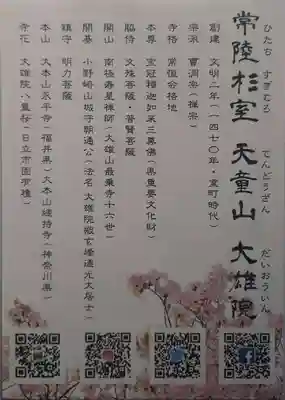 常陸杉室 天童山 大雄院
ひたち すぎむろ てんどうざん だいおういん
創建 文明二年(一四七〇年・室町時代)
宗派 曹洞宗(禅宗)
寺格 常恒会格地
本尊 宝冠釈迦如来三尊佛(県重要文化財)
脇侍 文殊菩薩・普賢菩薩
開山 南極寿星禅師(大雄山最乗寺十六世)
開基 小野崎山城守朝通公(法名 大雄院殿玄峰通光大居士)
鎮守 明力菩薩
本山 大本山永平寺(福井県)大本山總持寺(神奈川県)
寺花 大雄院八重桜(日立市固有種)